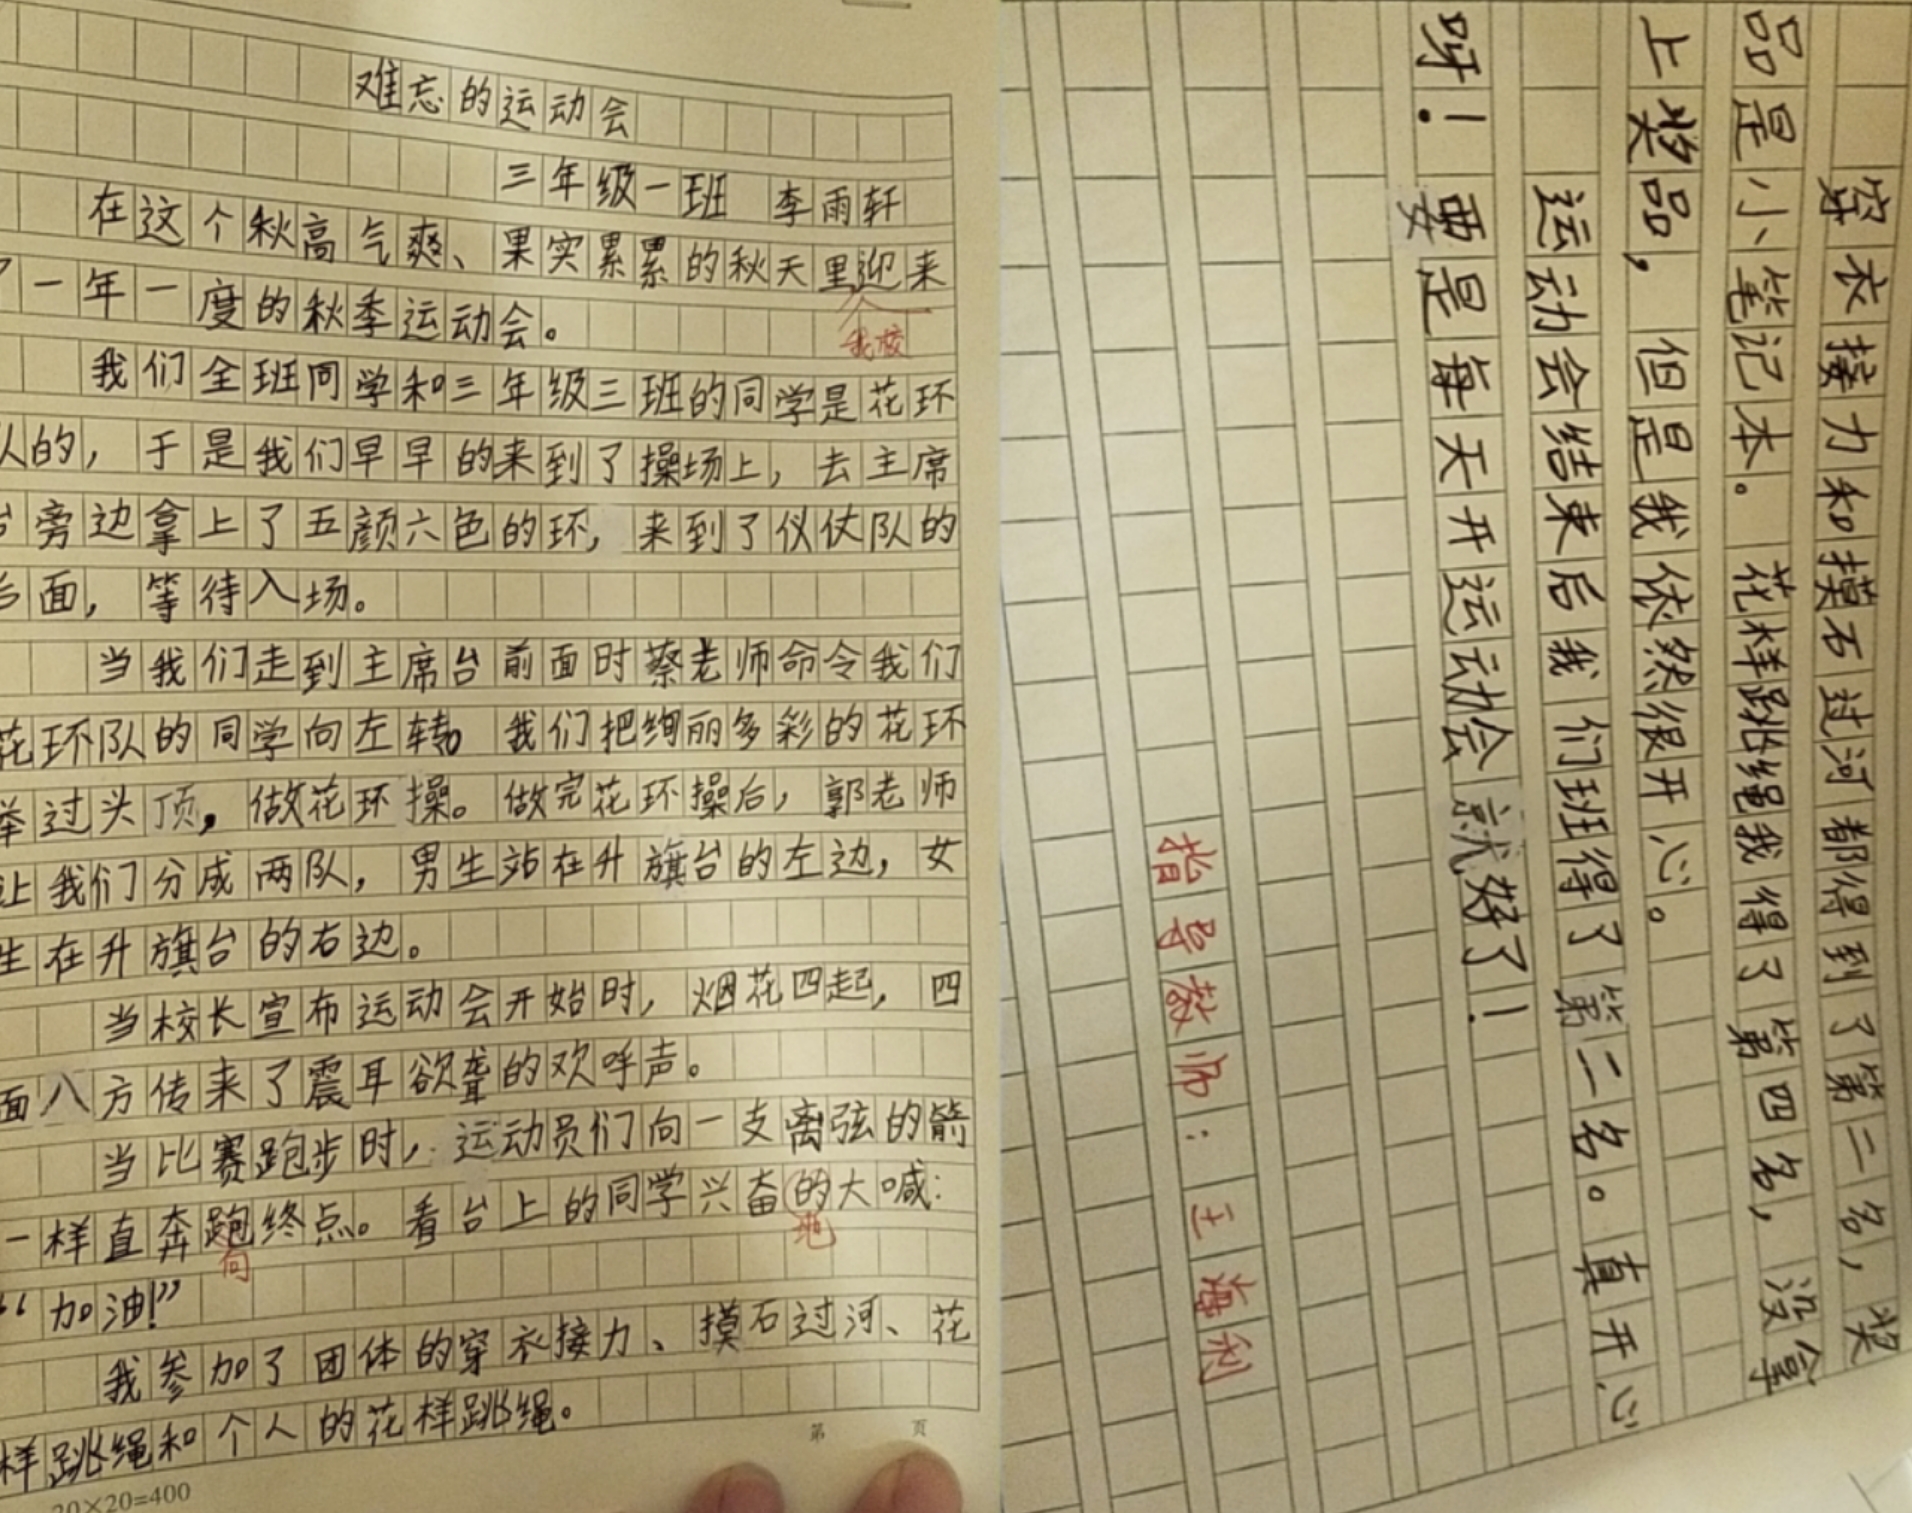 难忘的运动会
三年级一班 李雨轩
在这个秋高气爽、果实累累的秋天里迎来
我校
了一年一度的秋季运动会。
我们全班同学和三年级三班的同学是花环
队的，于是我们早早的来到了操场上，去主席
台旁边拿上了五颜六色的环，来到了仪仗队的
后面，等待入场。
当我们走到主席台前面时蔡老师命令我们
花环队的同学向左转。我们把绚丽多彩的花环
举过头顶，做花环操。做完花环操后，郭老师
让我们分成两队，男生站在升旗台的左边，女
生在升旗台的右边。
当校长宣布运动会开始时，烟花四起，四
面八方传来了震耳欲聋的欢呼声。
当比赛跑步时，运动员们向一支离弦的箭
一样直奔跑终点。看台上的同学兴奋的大喊：
向
地
“加油!”
我参加了团体的穿衣接力、摸石过河、花
样跳绳和个人的花样跳绳。
第 页
20×20=400
穿衣接力和摸石过河都得到了第二名，奖
品是小笔记本。花样跳绳我得了第四名，没拿
上奖品，但是我依然很开心。
运动会结束后我们班得了第二名。真开心
呀！要是每天开运动会就好了！
指导教师：王海利